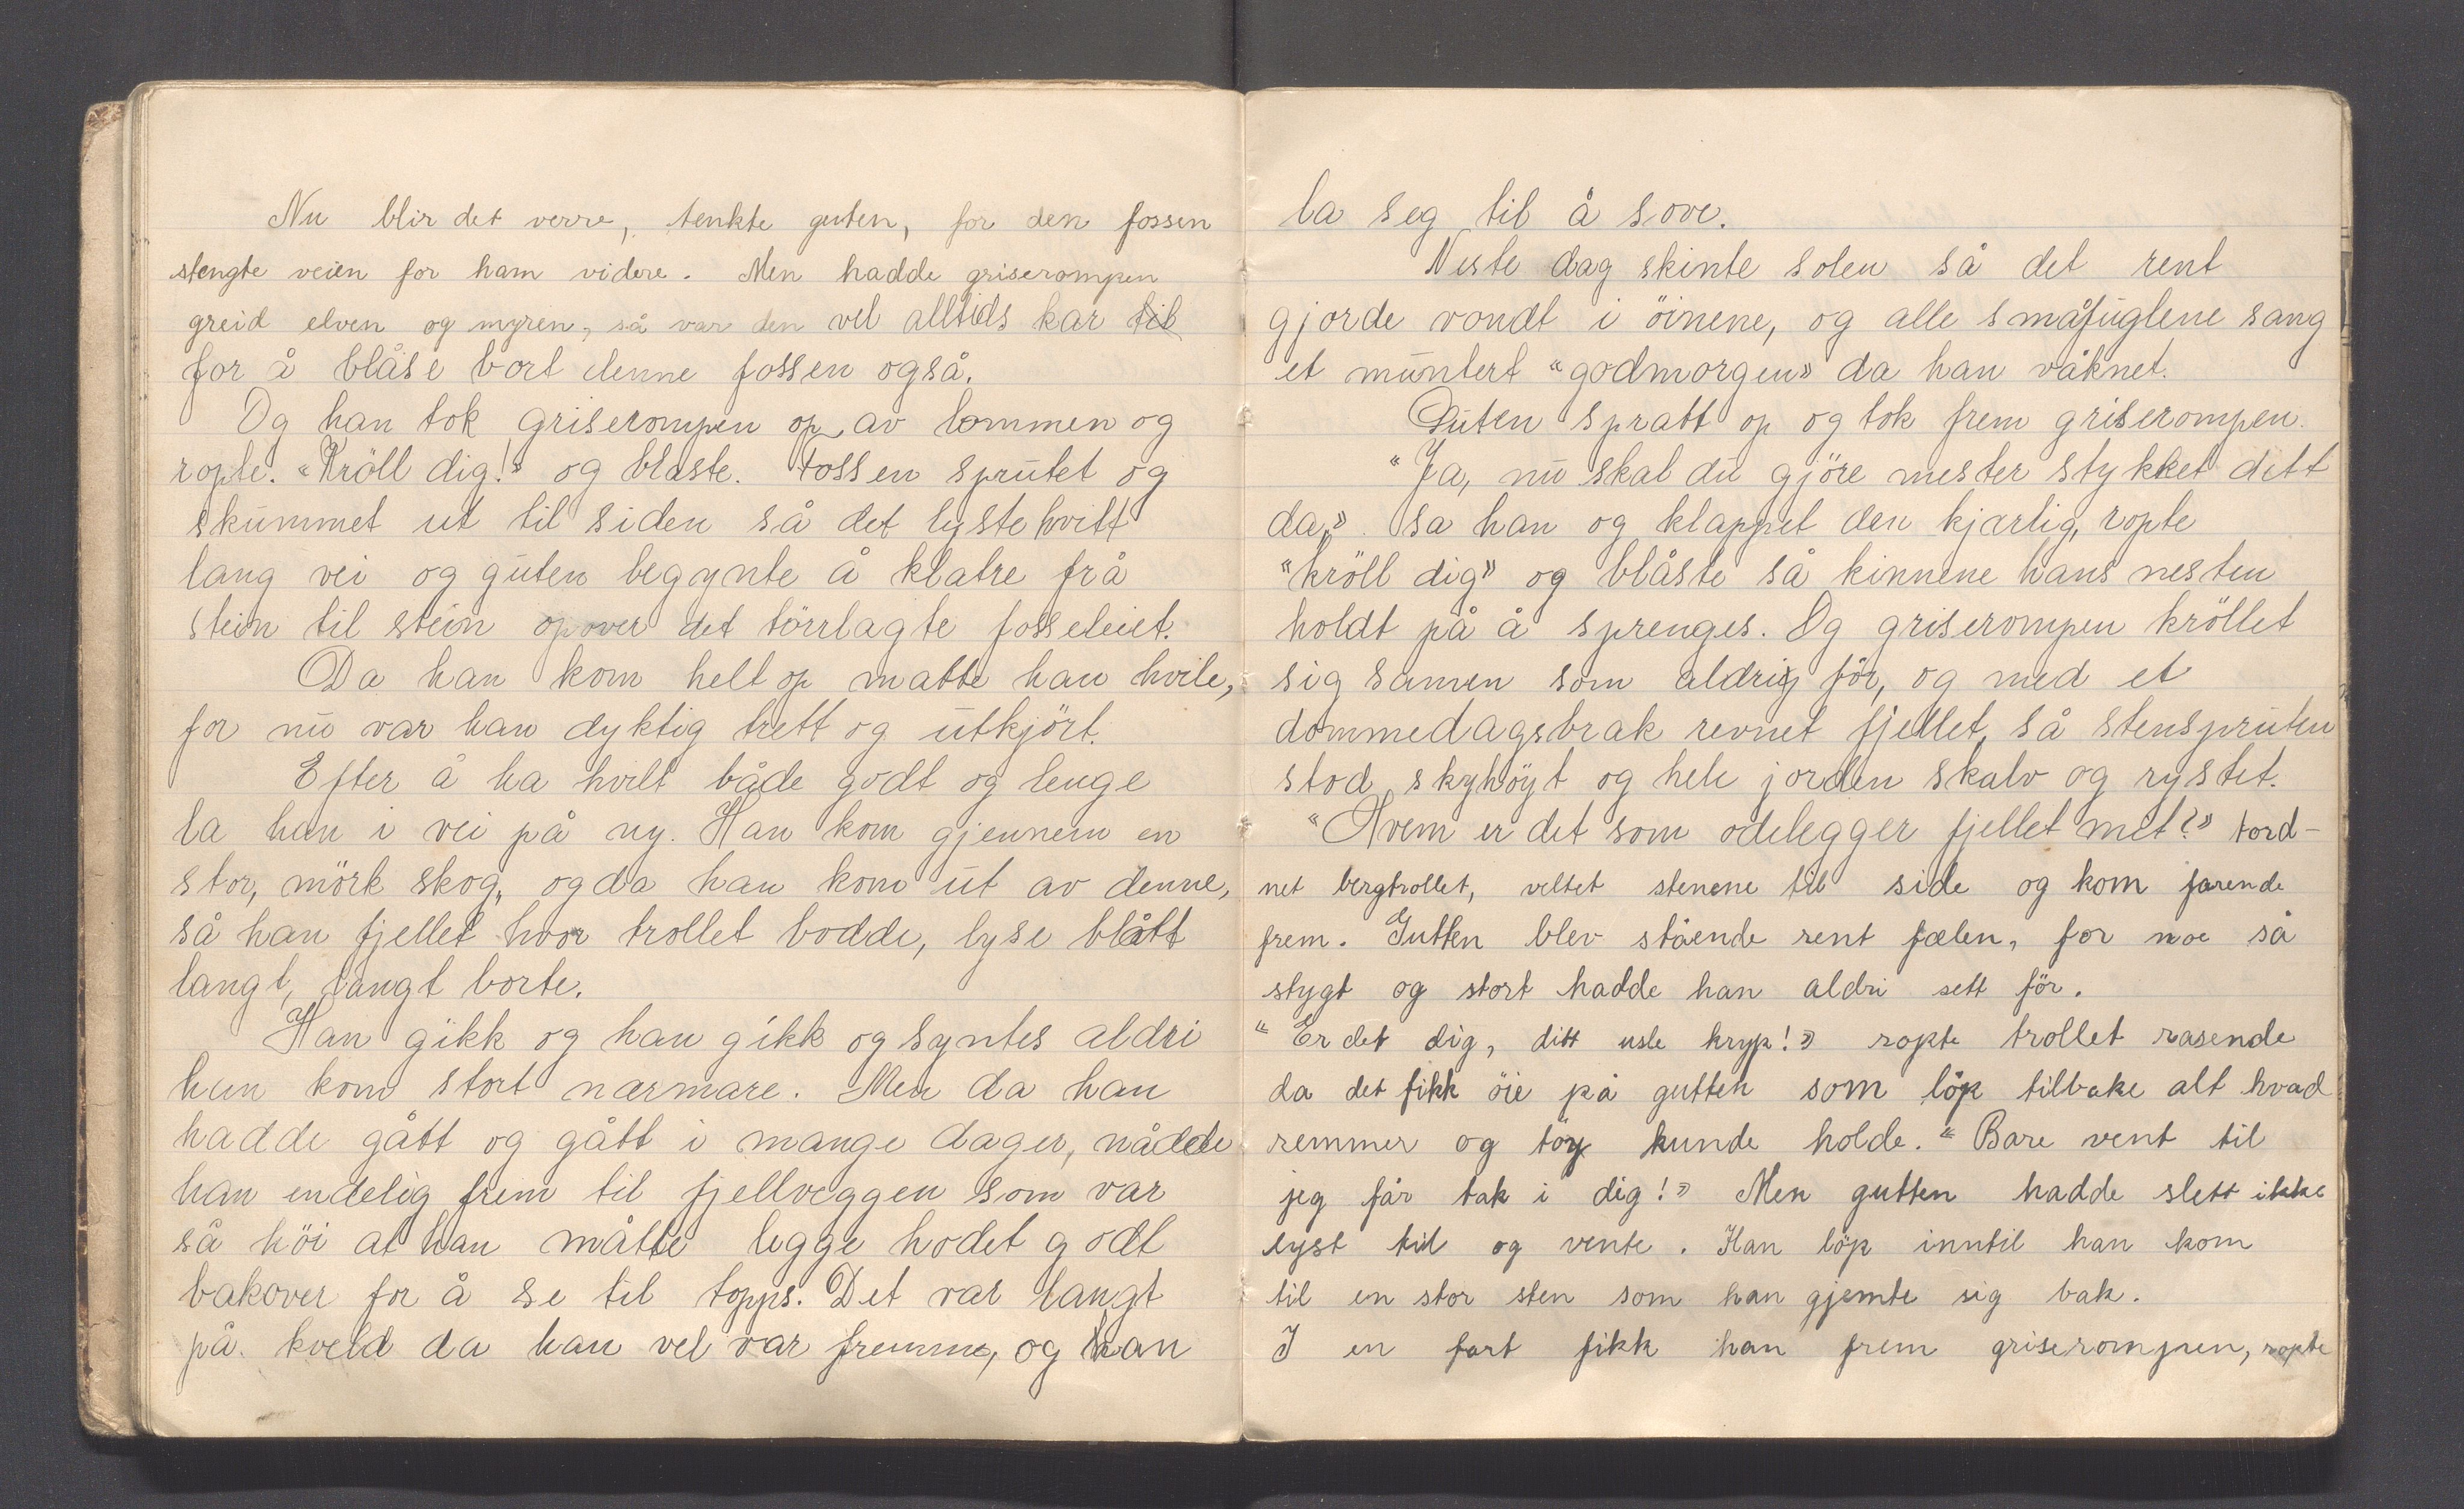 Nu blir det verre, tenkte guten, for den fossen
stengte veien for ham videre. Men hadde griserompen
greid elven og myren, så var den vel alltids kar til
for å blåse bort denne fossen også.
Og han tok griserompen op av lommen og
ropte. "Kröll dig!" og blaste. Fossen sprutet og
skummet ut til siden så det lyste hvitt
lang vei og guten begynte å klatre frå
stein til stein opover det törrlagte fosseleiet.
Da han kom helt op matte han hvile,
for nu var han dyktig trett og utkjört.
Efter å ha hvilt både godt og lenge
la han i vei på ny. Han kom gjennem en
stor, mörk skog, og da han kom ut av denne,
så han fjellet hvor trollet bodde, lyse blått
langt, langt borte.
Han gikk og han gikk og syntes aldri
han kom stort nærmare. Men da han
hadde gått og gått i mange dager, nådde
han endelig frem til fjellveggen som var
så höi at han måtte legge hodet godt
bakover for å se til topps. Det var langt
på kveld da han vel var fremme, og han
la seg til å sove.
Neste dag skinte solen så det rent
gjorde vondt i öinene, og alle småfuglene sang
et muntert "godmorgen" da han våknet.
Guten spratt op og tok frem griserompen.
"Ja, nu skal du gjöre mester stykket ditt
da," sa han og klappet den kjærlig, ropte
"kröll dig" og blåste så kinnene hans nesten
holdt på å sprenges. Og griserompen kröllet
sig samen som aldrig för, og med et
dommedagsbrak revnet fjellet, så stenspruten
stod skyhöyt og hele jorden skalv og rystet.
"Hvem er det som odelegger fjellet mitt?" tord-
net bergtrollet, veltet stenene til side og kom farende
frem. Gutten blev stående rent fælen, for noe så
stygt og stort hadde han aldri sett för.
"Er det dig, ditt usle kryp!" ropte trollet rasende
da det fikk öie på gutten som löp tilbake alt hvad
remmer og töy kunde holde. "Bare vent til
jeg får tak i dig!" Men gutten hadde slett ikke
lyst til og vente. Han löp inntil han kom
til en stor sten som han gjemte sig bak.
I en fart fikk han frem griserompen, ropte